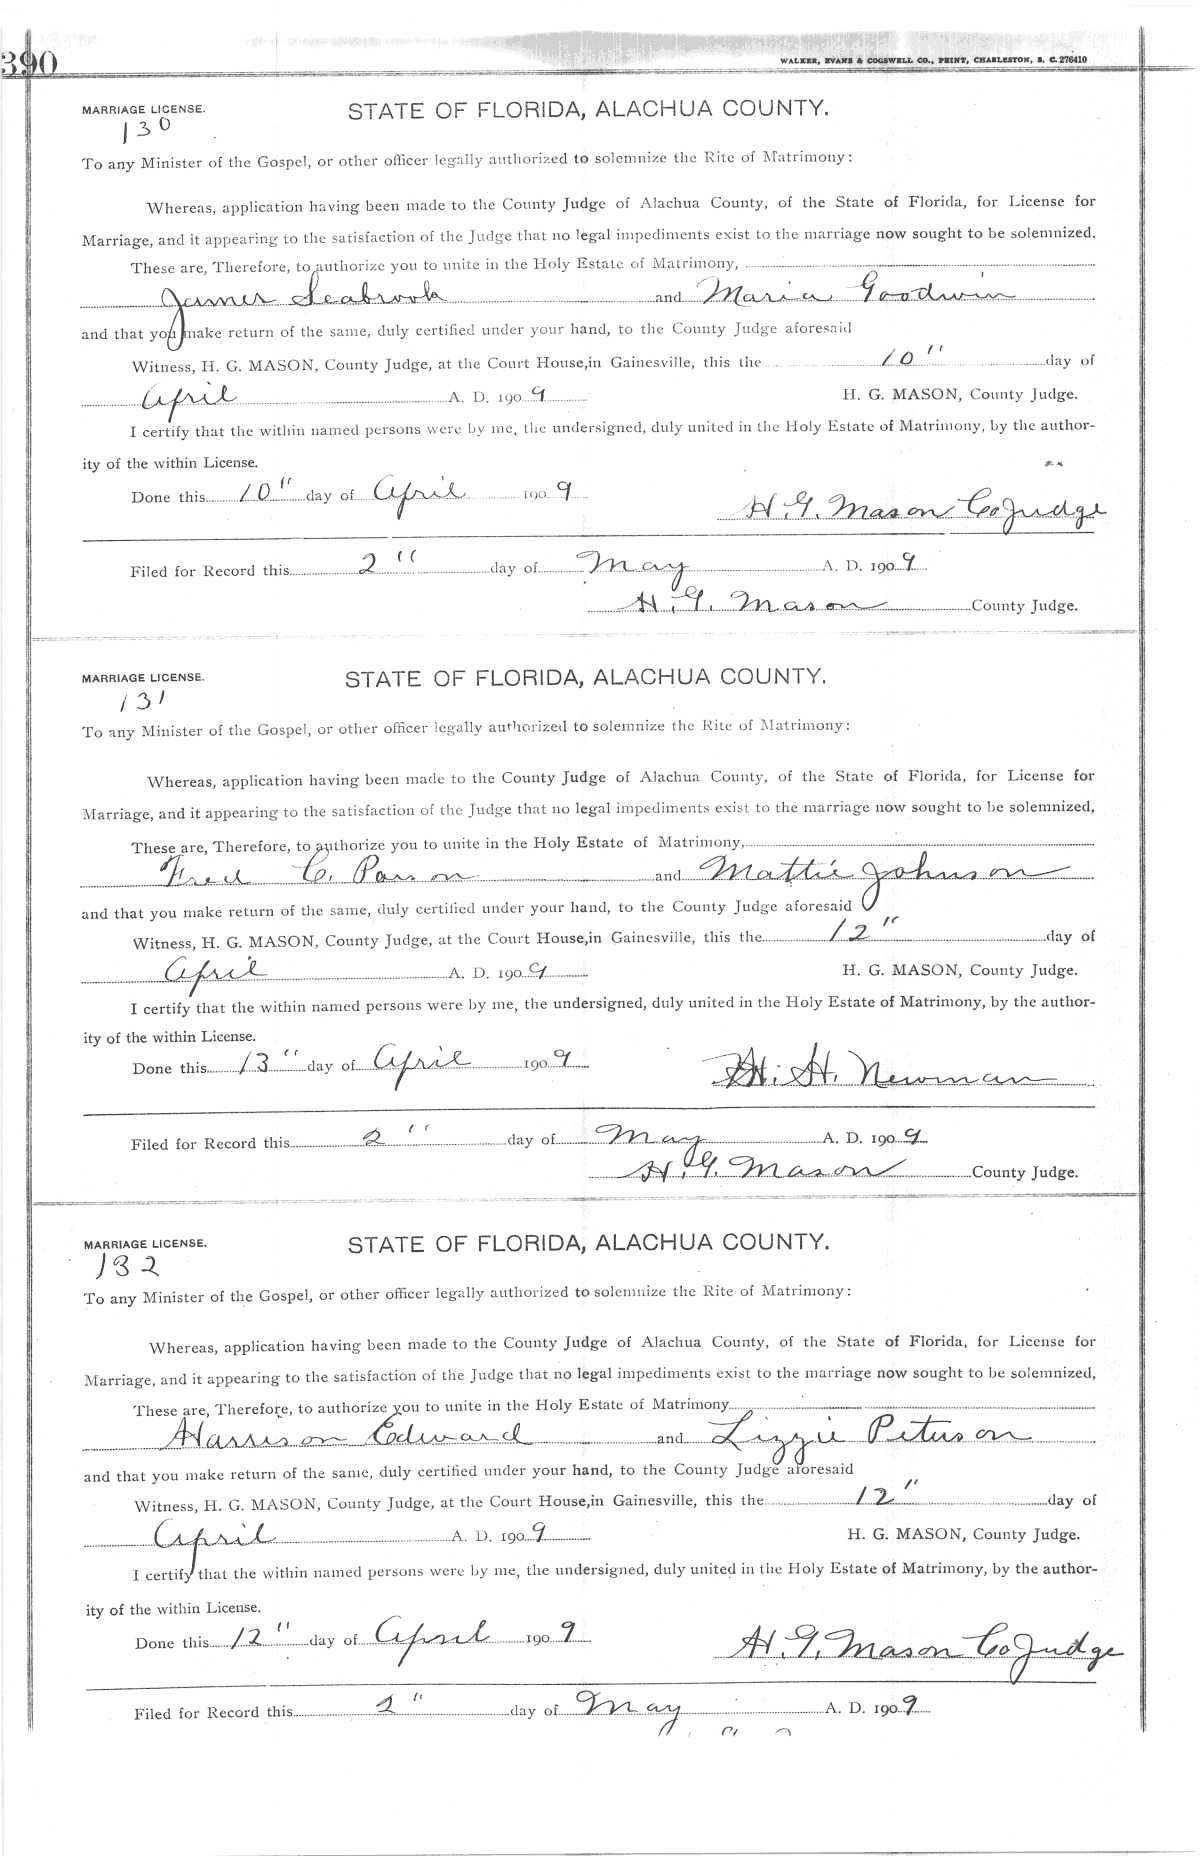 390
WALKER, EVANS & COGSWELL CO., PRINT, CHARLESTON, S. C. 276410
MARRIAGE LICENSE. STATE OF FLORIDA, ALACHUA COUNTY.
130
To any Minister of the Gospel, or other officer legally authorized to solemnize the Rite of Matrimony:
Whereas, application having been made to the County Judge of Alachua County, of the State of Florida, for License for
Marriage, and it appearing to the satisfaction of the Judge that no legal impediments exist to the marriage now sought to be solemnized,
These are, Therefore, to authorize you to unite in the Holy Estate of Matrimony,
James Seabrook and Maria Goodwin
and that you make return of the same, duly certified under your hand, to the County Judge aforesaid
Witness, H. G. MASON, County Judge, at the Court House, in Gainesville, this the 10" day of
April A. D. 1909 H. G. MASON, County Judge.
I certify that the within named persons were by me, the undersigned, duly united in the Holy Estate of Matrimony, by the author-
ity of the within License.
Done this 10" day of April 1909
H. G. Mason Co Judge
Filed for Record this 2" day of May A. D. 1909
H. G. Mason County Judge.
MARRIAGE LICENSE. STATE OF FLORIDA, ALACHUA COUNTY.
131
To any Minister of the Gospel, or other officer legally authorized to solemnize the Rite of Matrimony:
Whereas, application having been made to the County Judge of Alachua County, of the State of Florida, for License for
Marriage, and it appearing to the satisfaction of the Judge that no legal impediments exist to the marriage now sought to be solemnized,
These are, Therefore, to authorize you to unite in the Holy Estate of Matrimony,
Fred C. Parson and Mattie Johnson
and that you make return of the same, duly certified under your hand, to the County Judge aforesaid
Witness, H. G. MASON, County Judge, at the Court House, in Gainesville, this the 12" day of
April A. D. 1909 H. G. MASON, County Judge.
I certify that the within named persons were by me, the undersigned, duly united in the Holy Estate of Matrimony, by the author-
ity of the within License.
Done this 13" day of April 1909
H. H. Newman
Filed for Record this 2" day of May A. D. 1909
H. G. Mason County Judge.
MARRIAGE LICENSE. STATE OF FLORIDA, ALACHUA COUNTY.
132
To any Minister of the Gospel, or other officer legally authorized to solemnize the Rite of Matrimony:
Whereas, application having been made to the County Judge of Alachua County, of the State of Florida, for License for
Marriage, and it appearing to the satisfaction of the Judge that no legal impediments exist to the marriage now sought to be solemnized,
These are, Therefore, to authorize you to unite in the Holy Estate of Matrimony
Harrison Edward and Lizzie Peterson
and that you make return of the same, duly certified under your hand, to the County Judge aforesaid
Witness, H. G. MASON, County Judge, at the Court House, in Gainesville, this the 12" day of
April A. D. 1909 H. G. MASON, County Judge.
I certify that the within named persons were by me, the undersigned, duly united in the Holy Estate of Matrimony, by the author-
ity of the within License.
Done this 12" day of April 1909
H. G. Mason Co Judge
Filed for Record this 2" day of May A. D. 1909